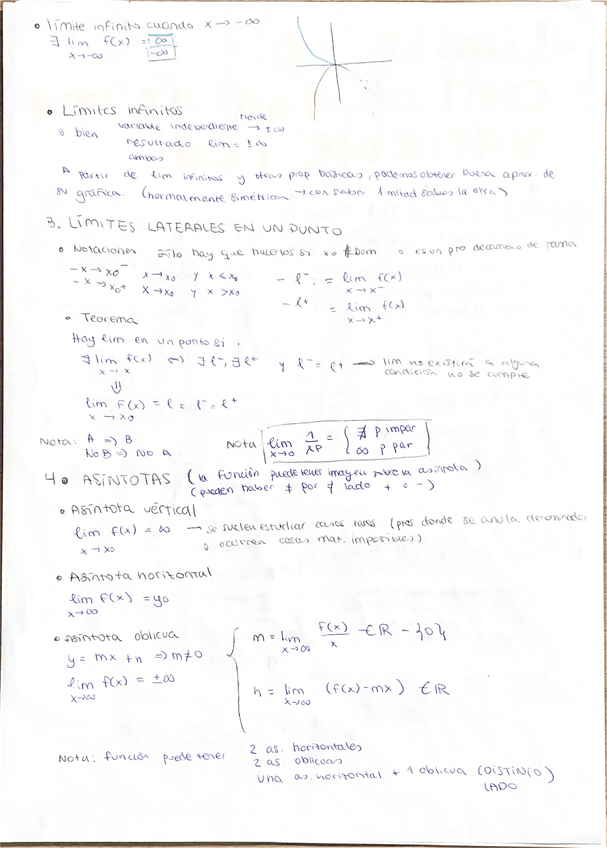 • límite infinito cuando x → -∞
∃ lim f(x) = ∞
x→-∞ -∞
• Límites infinitos
o bien variable independiente tiende → ±∞
resultado lim = ±∞
ambos
A partir de lim infinitos y otras prop básicas, podemos obtener buena aprox. de
su gráfica. (normalmente simétrica → con saber 1 mitad sabes la otra)
3. LÍMITES LATERALES EN UN PUNTO
• Notaciones sólo hay que hacerlos si x0 ∉ Dom o es un pto de cambio de rama
- x → x0⁻ x → x0 y x < x0 - l⁻ : = lim f(x)
x → x⁻
- x → x0⁺ x → x0 y x > x0 - l⁺ = lim f(x)
x → x⁺
• Teorema
Hay lim en un punto si :
∃ lim f(x) ⟺ ∃ l⁻, ∃ l⁺ y l⁻ = l⁺ → lim no existirá si alguna
x → x condición no se cumple
⇓
lim f(x) = l = l⁻ = l⁺
x → x0
Nota: A ⇒ B
No B ⇒ NO A
Nota lim 1/xp = { ∄ p impar
x→0 ∞ p par
4. ASÍNTOTAS (la función puede tener imagen sobre la asíntota)
(pueden haber ≠ por ≠ lado + o -)
• Asíntota vértical
lim f(x) = ∞ → se suelen estudiar casos raros (ptos donde se anula denominador
x → x0 o ocurren cosas mat. imposibles)
• Asíntota horizontal
lim f(x) = y0
x→∞
• Asíntota oblicua
y = mx + n ⇒ m≠0
lim f(x) = ±∞
x→∞
m = lim f(x)/x ∈ ℝ - {0}
x→∞
n = lim (f(x)-mx) ∈ ℝ
x→∞
Nota: función puede tener 2 as. horizontales
2 as. oblicuas
una as. horizontal + 1 oblicua (DISTINTO)
LADO